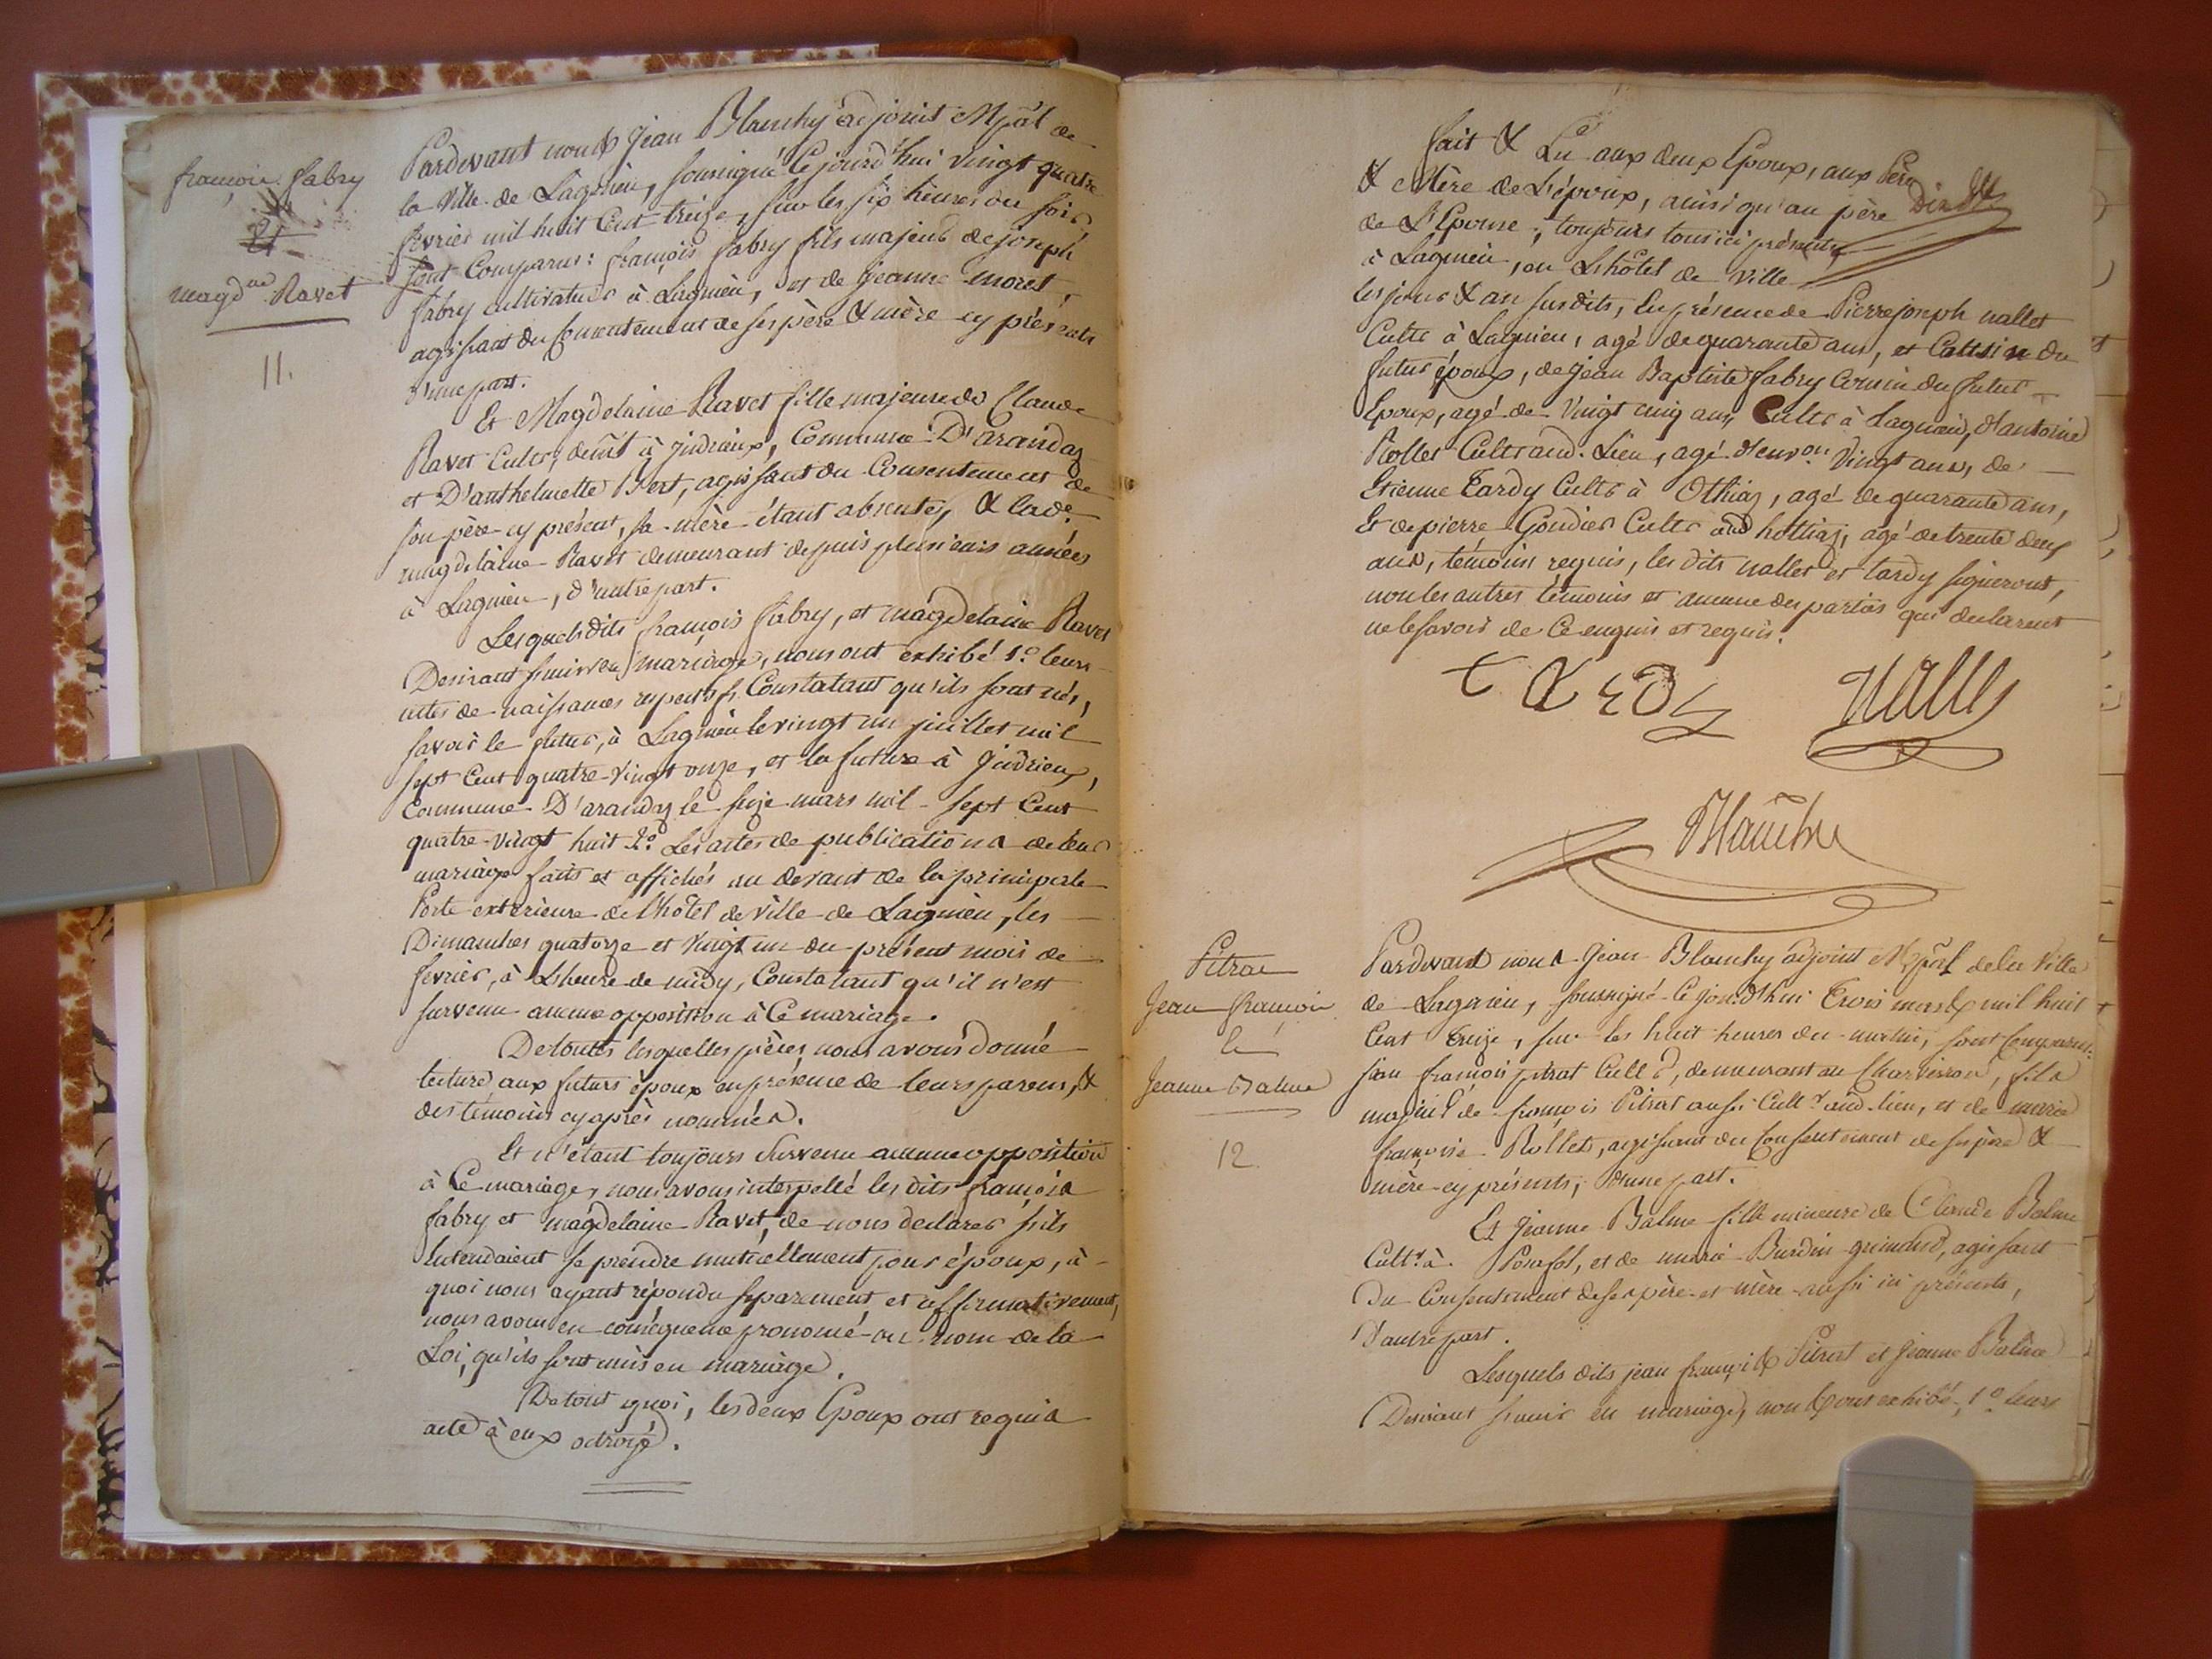 françois fabry
Et
magd.ne Ravet
11.
Pardevant nous Jean Blanchy adjoint Mpãl de
la Ville de Lagnieu, soussigné Cejourd'hui vingt quatre
fevrier mil huit Cent treize, sur les six heures du soir,
sont Comparus: françois fabry fils majeur de joseph
fabry cultivateur à Lagnieu, et de jeanne moret,
agissant du Consentement de ses père & mère cy présents
d'une part.
Et Magdelaine Ravet fille majeure de Claude
Ravet Cultr, demt à judrieux, Commune D'arandaz
et D'anthelmette Bert, agissant du Consentement de
son père cy présent, sa mère étant absente, & lade
magdelaine Ravet demeurant depuis plusieurs années
à Lagnieu, d'autre part.
Lesquels dits françois fabry, et magdelaine Ravet
Desirant s'unir en mariage, nous ont exhibé 1.º leurs
actes de naissances respectifs Constatant qu'ils sont nés,
savoir le futur, à Lagnieu le vingt un juillet mil
sept Cent quatre-vingt onze, et la future à judrieux,
Commune D'arandaz le seize mars mil sept Cent
quatre-vingt huit 2º Les actes de publications de leur
mariage faits et affichés au devant de la principale
Porte exterieure de l'hôtel de ville de Lagnieu, les
Dimanches quatorze et vingt un du présent mois de
fevrier, à L'heure de midy, Constatant qu'il n'est
survenu aucune opposition à Ce mariage.
De toutes lesquelles pièces nous avons donné
lecture aux futurs époux en présence de leurs parens, &
des témoins cy après nommés.
Et n'étant toujours Survenu aucune opposition
à Ce mariage, nous avons interpellé les dits françois
fabry et magdelaine Ravet, de nous declarer s'ils
Entendaient se prendre mutuellement pour époux, à
quoi nous ayant répondu séparément et affirmativement,
nous avons en conséquence prononcé au nom de la
Loi, qu'ils sont unis en mariage.
De tout quoi, les deux Epoux ont requis
acte à eux octroyé.
fait & Lu aux deux Epoux, aux Père
& Mère de L'époux, ainsi qu'au père
de L'Epouse, toujours tous ici présents
à Lagnieu, en L'hôtel de Ville
les jour & an susdits, En présence de Pierre joseph nallet
Cultr à Lagnieu, agé de quarante ans, et Cousin du
futur époux, de jean Baptiste fabry Cousin du futur
Epoux, agé de Vingt cinq ans, Cultr à Lagnieu, d'antoine
Rollet Cultr aud. Lieu, agé d'environ Vingt ans, de
Etienne Tardy Cultr à Othiaz, agé de quarante ans,
Et de pierre Goudier Cultr aud hottiaz, agé de trente deux
ans, témoins requis, les dits nallet et tardy signeront,
non les autres témoins et aucune des parties qui declarent
ne le savoir de Ce enquis et requis.
Nallet
Blanchy
Pitrat
Jean françois
&
Jeanne Balme
12.
Pardevant nous Jean Blanchy adjoint Mpãl de la Ville
de Lagnieu, soussigné Cejourd'hui Trois mars mil huit
Cent treize, sur les huit heures du matin, sont Comparus:
jean françois pitrat Cultr, demeurant au Charveyron, fils
majeur de françois Pitrat aussi Cultr aud. lieu, et de marie
françoise Rollet, agissant du Consentement de ses père &
mère cy présents, d'une part.
Et Jeanne Balme fille mineure de Claude Balme
Cultr à Posafol, et de marie Burdin grimond, agissant
du Consentement de ses père et mère aussi ici présents,
D'autre part.
Lesquels dits jean françois Pitrat et Jeanne Balme
Desirant s'unir en mariage, nous ont exhibé, 1º leurs